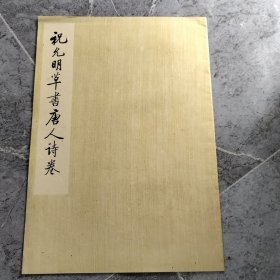 祝允明草書唐人诗卷